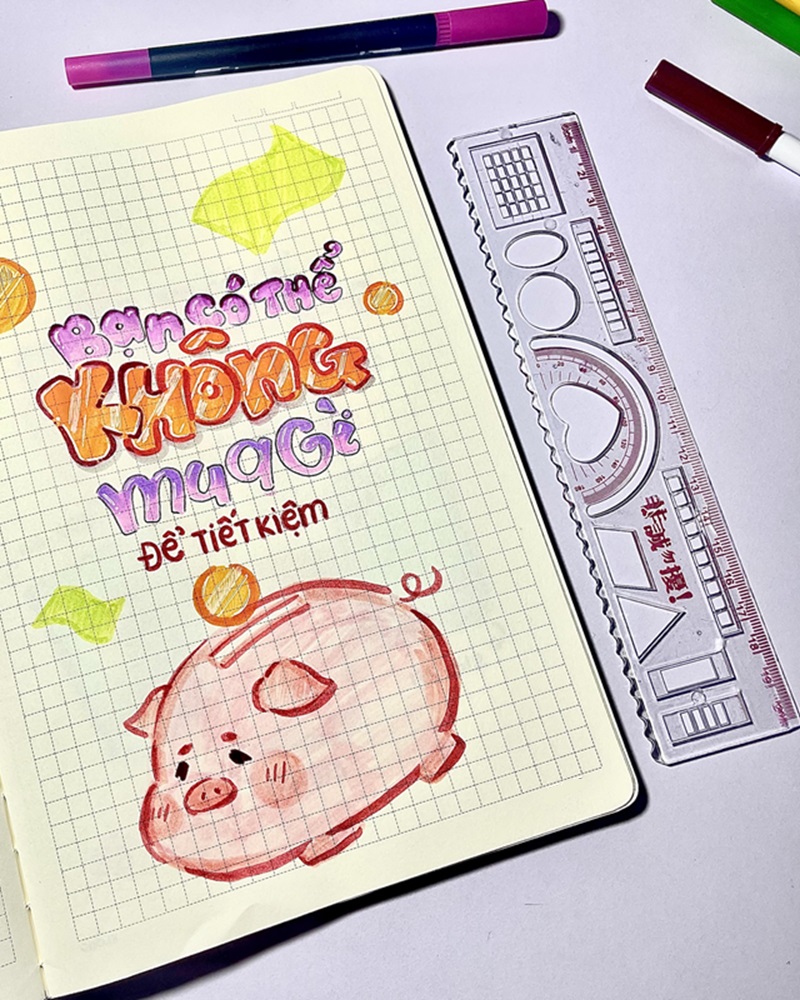 Bạn có thể
KHÔNG
mua Gì
Để tiết kiệm